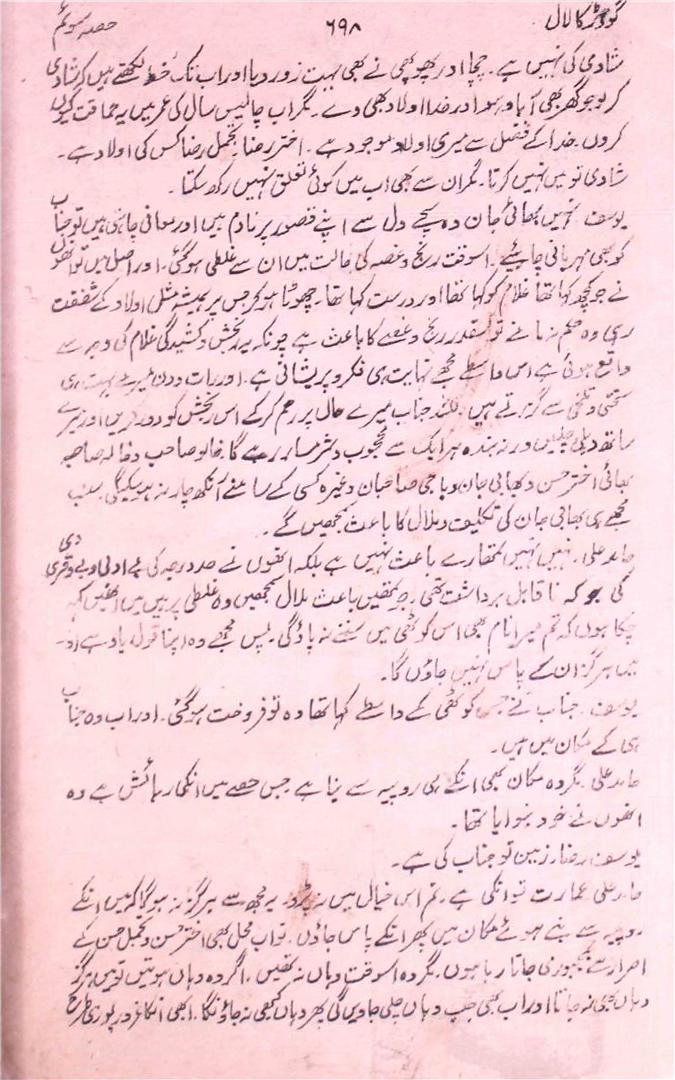 گودڑ کا لال ۶۹۸ حصہ سوئم
شادی کی نہیں ہے۔ چچا اور پھوپھی نے بھی بہت زور دیا اور اب تک خط لکھتے ہیں کہ شادی
کر لو جو گھر بھی آباد ہو اور خدا اولاد بھی دے۔ مگر اب چالیس سال کی عمر میں یہ حماقت کیوں
کروں۔ خدا کے فضل سے میری اولاد موجود ہے۔ اختر رضا۔ تجمل رضا کس کی اولاد ہے۔
شادی تو میں نہیں کرتا۔ مگر ان سے بھی اب میں کوئی تعلق نہیں رکھ سکتا۔
یوسف۔ نہیں بھائی جان وہ سچے دل سے اپنے قصور پر نادم ہیں اور معافی چاہتی ہیں تو جناب
کو بھی مہربانی چاہئیے۔ اسوقت رنج و غصہ کی حالت میں ان سے غلطی ہو گئی۔ اور اصل میں تو انھوں
نے جو کچھ کہا تھا غلام کو کہا تھا اور درست کہا تھا۔ چھوٹا ہو کر جس پر ہمیشہ مثل اولاد کے شفقت
رہی وہ حکم نہ مانے تو اسقدر رنج و غصے کا باعث ہے چونکہ یہ رنجش و کشیدگی غلام کی وجہ سے
واقع ہوئی ہے اس واسطے مجھے نہایت ہی فکر و پریشانی ہے۔ اور رات و دن میرے بہت ہی
سختی و تلخی سے گزرتے ہیں۔ للہ جناب میرے حال پر رحم کر کے اس رنجش کو دور کریں اور میرے
ساتھ دہلی چلیں ورنہ بندہ ہر ایک سے محجوب و شرمسار رہے گا۔ خالو صاحب و خالہ صاحبہ
بھائی اختر حسن و بھابی جان و باجی صاحبان وغیرہ کسی کے سامنے آنکھ چار نہ ہو سکیگی۔ سب
مجھے ہی بھابی جان کی تکلیف و ملال کا باعث سمجھیں گے۔
حامد علی۔ نہیں نہیں تمھارے باعث نہیں ہے بلکہ انھوں نے حد درجہ کی بے ادبی و بے وقری
کی جو کہ نا قابل برداشت تھی۔ جو تمھیں باعث ملال سمجھیں وہ غلطی پر ہیں میں انھیں کہہ
چکا ہوں کہ تم میرا نام بھی اس کوٹھی میں سننے نہ پاؤ گی۔ بس مجھے وہ اپنا قول یاد ہے اور
میں ہرگز ان کے پاس نہیں جاؤں گا۔
یوسف۔ جناب نے جس کوٹھی کے واسطے کہا تھا وہ تو فروخت ہو گئی۔ اور اب وہ جناب
ہی کے مکان میں ہیں۔
حامد علی۔ مگر وہ مکان بھی انکے ہی روپیہ سے بنا ہے جس حصے میں انکی رہائش ہے وہ
انھوں نے خود بنوایا تھا۔
یوسف رضا۔ زمین تو جناب کی ہے۔
حامد علی عمارت تو انکی ہے۔ تم اس خیال میں نہ پڑو۔ یہ مجھ سے ہرگز نہ ہو گا کہ میں انکے
روپیہ سے بنے ہوئے مکان میں پھر انکے پاس جاؤں۔ نواب محل بھی اختر حسن و تجمل حسن کے
اصرار سے مجبوری جاتا رہا ہوں۔ مگر وہ اسوقت وہاں نہ تھیں۔ اگر وہ وہاں ہوتیں تو میں ہرگز
وہاں بھی نہ جاتا اور اب بھی جب وہاں چلی جاویں گی پھر وہاں کبھی نہ جاؤنگا۔ ابھی انکا غرور پوری طرح